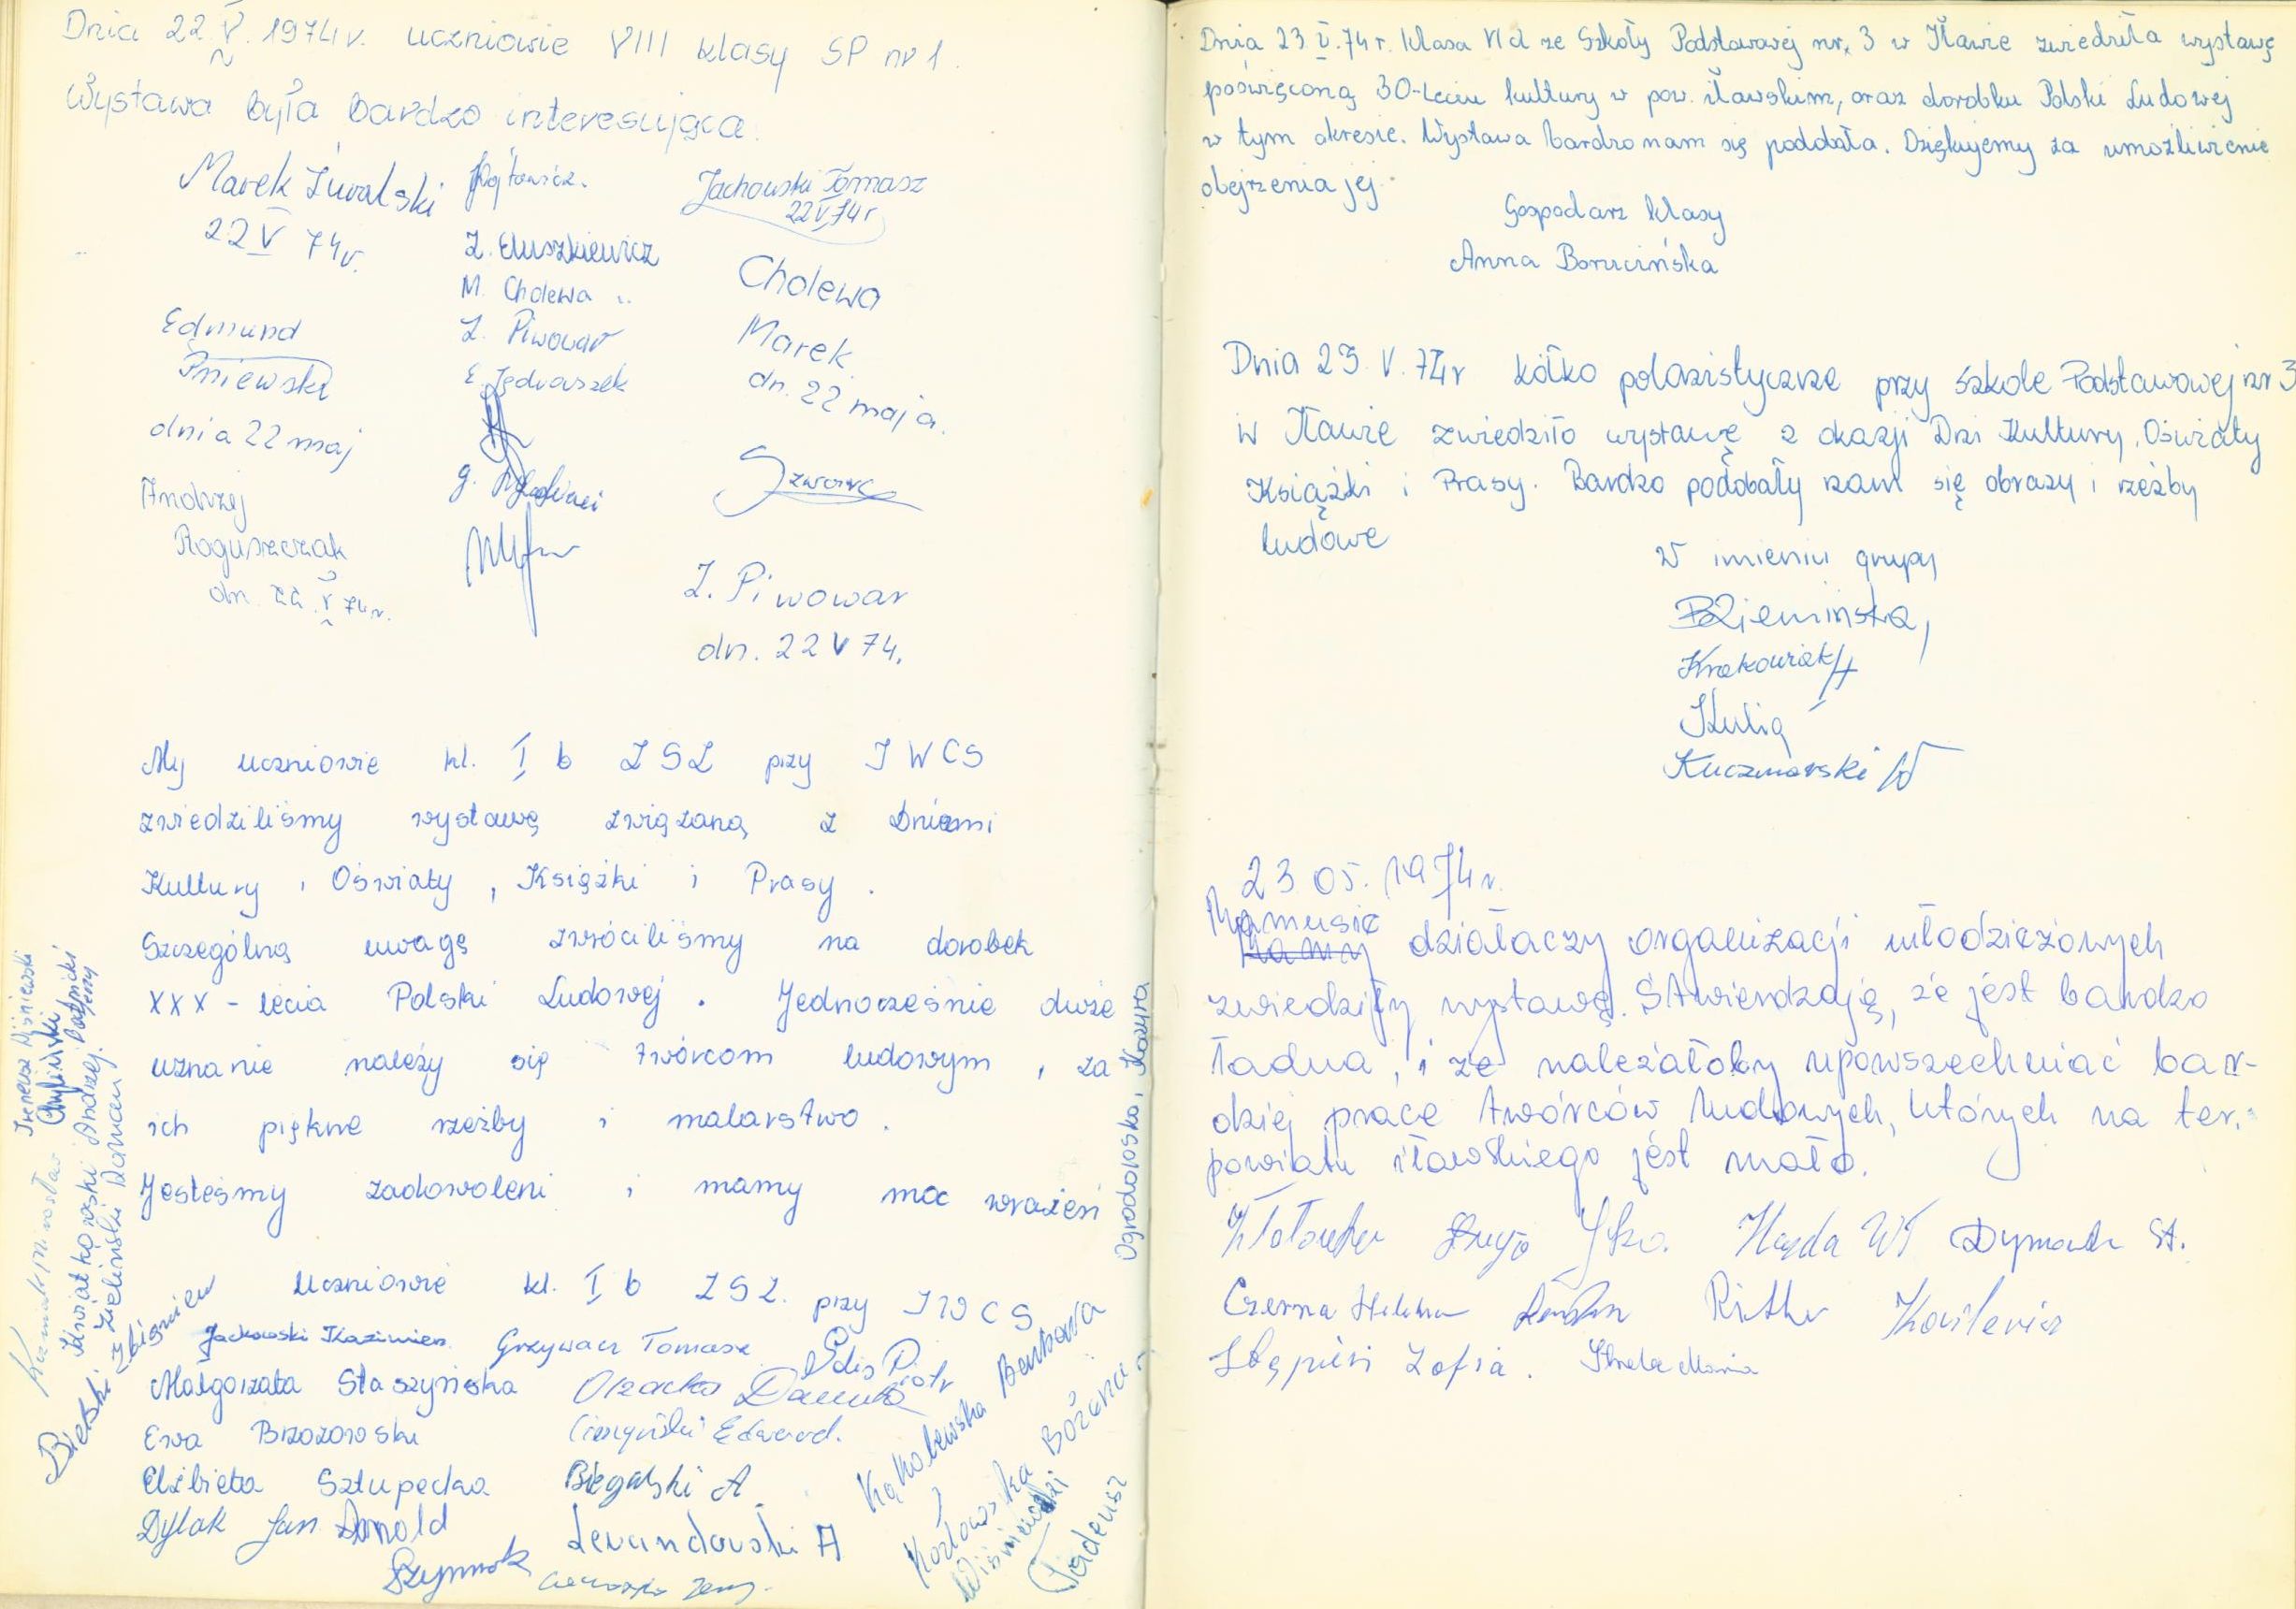 Dnia 22.V.1974r. uczniowie VIII klasy SP nr 1.
Wystawa była bardzo interesująca.
Marek Żuralski
22 V 74r.
Edmund
Pniewski
dnia 22 maj
Andrzej
Roguszczak
dn. 22.V 74r.
Wójtowicz.
M. Cholewa
Z. Piwowar
E. Jędraszek
Jachowski Tomasz
22 V 74r
Cholewa
Marek
dn. 22 maja.
Z. Piwowar
dn. 22 V 74.
My uczniowie kl. I b ZSZ przy IWCS
zwiedziliśmy wystawę związaną z Dniami
Kultury, Oświaty, Książki i Prasy.
Szczególną uwagę zwróciliśmy na dorobek
XXX-lecia Polski Ludowej. Jednocześnie duże
uznanie należy się twórcom ludowym, za
ich piękne rzeźby i malarstwo.
Jesteśmy zadowoleni i mamy moc wrażeń
Uczniowie kl. I b ZSZ. przy IWCS
Jackowski Kazimierz
Grzywacz Tomasz
Małgorzata Staszyńska
Danuta
Piotr
Ewa Brzozowska
Edward.
Elżbieta Sztupecka
Biegalski A
Dylak Jan Arnold
Lewandowski A
Szymnok
Kąkolewska Barbara
Kozłowska Bożena
Wiśniewski
Tadeusz
Ogrodowska, Kazyra
Ireneusz Wiśniewski
Chyliński
Kwiatkowski Andrzej
Zieliński Roman
Bielski Zbigniew
Dnia 23.V.74r. klasa VI d ze Szkoły Podstawowej nr. 3 w Iławie zwiedziła wystawę
poświęconą 30-leciu kultury w pow. iławskim, oraz dorobku Polski Ludowej
w tym okresie. Wystawa bardzo nam się podobała. Dziękujemy za umożliwienie
obejrzenia jej.
Gospodarz klasy
Anna Borucińska
Dnia 23.V.74r kółko polonistyczne przy Szkole Podstawowej nr 3
w Iławie zwiedziło wystawę z okazji Dni Kultury, Oświaty
Książki i Prasy. Bardzo podobały nam się obrazy i rzeźby
ludowe
W imieniu grupy
Dziemińska,
Krakowiak H
Kulig
Kuczmarski W
23 05. 1974r.
Mamusie
działaczy organizacji młodzieżowych
zwiedziły wystawę. Stwierdzają, że jest bardzo
ładna, i że należałoby upowszechniać bar-
dziej pracę twórców ludowych, których na ter.
powiatu iławskiego jest mało.
Dymack St.
Czerna Helena
Zofia.
Maria